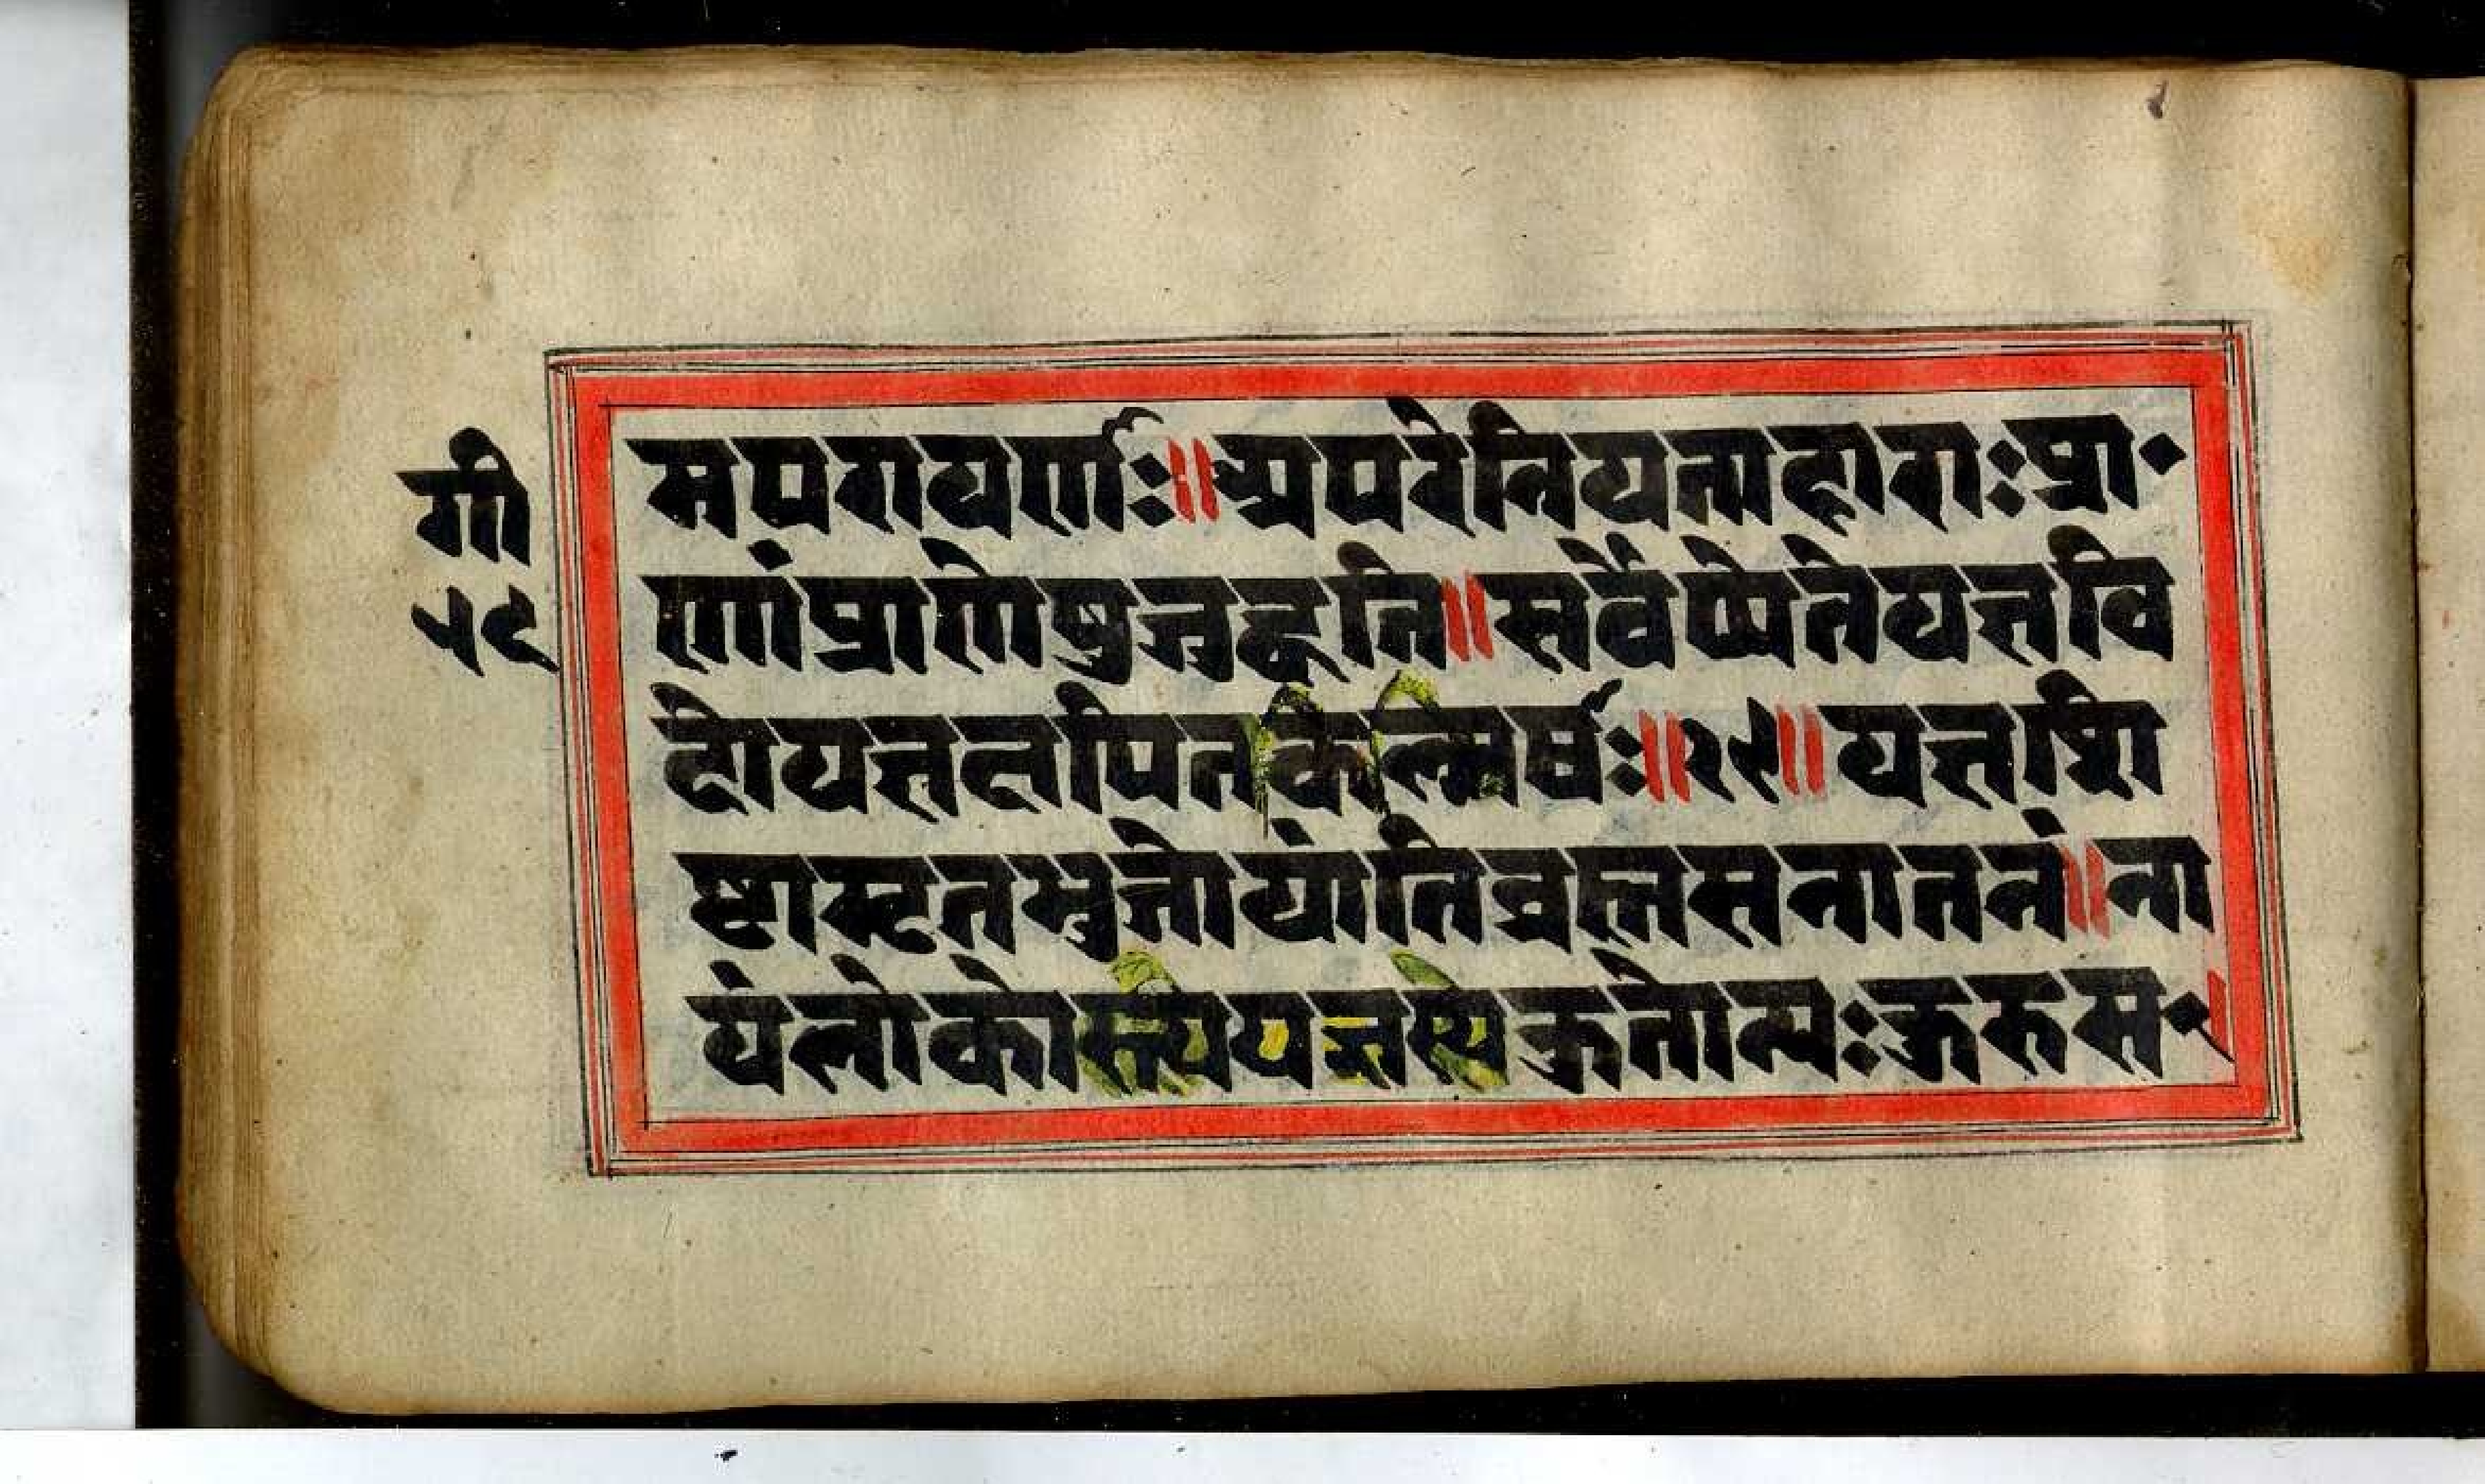 गी
५८
मपरायणाः॥अपरेनियताहाराःप्रा॰
णांप्राणेषुजुह्वति॥सर्वेप्येतेयज्ञवि
दोयज्ञक्षपितकल्मषाः॥२९॥यज्ञशि
ष्टामृतभुजोयांतिब्रह्मसनातनं॥ना
यंलोकोस्त्ययज्ञस्यकुतोन्यःकुरुस॰